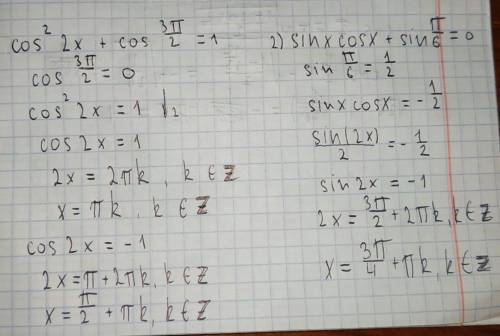 cos² 2x + cos 3π/2 = 1
cos 3π/2 = 0
cos² 2x = 1
cos 2x = 1
2x = 2πk, k ∈ Z
x = πk, k ∈ Z
cos 2x = -1
2x = π + 2πk, k ∈ Z
x = π/2 + πk, k ∈ Z
2) sinx cosx + sin π/6 = 0
sin π/6 = 1/2
sinx cosx = - 1/2
sin(2x)/2 = - 1/2
sin 2x = -1
2x = 3π/2 + 2πk, k ∈ Z
x = 3π/4 + πk, k ∈ Z